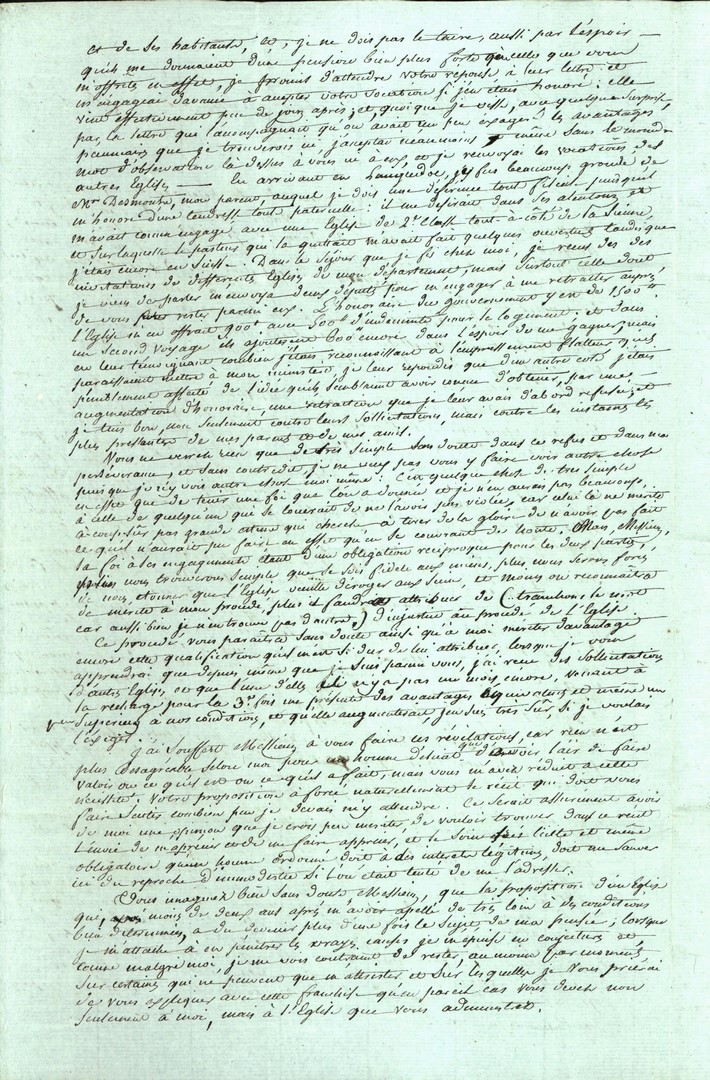 et de ses habitants, et, je ne dois pas le taire, aussi par l'espoir —
qu'ils me donnaient d'une pension bien plus forte que celle que vous
m'offrites en effet, je promis d'attendre votre reponse à leur lettre et
m'engageai d'avance à accepter votre vocation si j'en etais honoré: elle
vint effectivement peu de jours après; et, quoique je visse, avec quelque surprise,
par la lettre qui l'accompagnait qu'on avait un peu exagéré les avantages
pecuniaires que je trouverois ici, j'acceptai neanmoins et même sans le moindre
mot d'observation là dessus à vous ni à eux et je renvoyai les vocations des
autres Eglises. — En arrivant en Languedoc, je fus beaucoup grondé de
Mr Desmonts, mon parent, auquel je dois une déférence tout filiale puisqu'il
m'honore d'une tendresse toute paternelle: il me desirait dans ses alentours,
m'avait comme engagé avec une Eglise de 2e Classe tout-à-coté de la sienne,
et sur laquelle le pasteur qui la quittait m'avait fait quelques ouvertures tandis que
j'étais encore en Suisse. Dans le séjour que je fis chez moi, je reçus des
invitations de differentes Eglises de mon département, mais surtout celle dont
je viens de parler m'envoya deux députés pour m'engager à me retracter auprès
de vous et rester parmi eux. L'honoraire du gouvernement y est de 1500
l'Eglise m'en offrait 900 avec 500 d'indemnité pour le logement: et dans
un second voyage ils ajoutèrent 600 encore dans l'espoir de me gagner; mais
en leur témoignant combien j'étais reconnaissant à l'empressement flatteur qu'ils
paraissaient mettre à mon ministère, je leur repondis que d'un autre coté j'étais
peniblement affecté de l'idée qu'ils semblaient avoir conçue d'obtenir, par une
augmentation d'honoraire, une retractation que je leur avais d'abord refusée; et
je tins bon, non seulement contre leurs sollicitations, mais contre les instances les
plus pressantes de mes parents et de mes amis.
Vous ne verrez rien que de très simple sans doute dans ce refus et dans ma
perséverance; et sans contredit, je ne veux pas vous y faire voir autre chose
puisque je n'y vois autre chose moi même: c'est quelque chose de très simple
en effet que de tenir une foi que l'on a donnée et je n'en aurais pas beaucoup
à celle de quelqu'un qui se louerait de ne l'avoir pas violée, car celui là ne merite
à coup sûr pas grande estime qui cherche à tirer de la gloire de n'avoir pas fait
ce qu'il n'aurait pu faire en effet qu'en se couvrant de honte. Mais, Messieurs,
la foi à ses engagements étant d'une obligation reciproque pour les deux parties,
plus nous trouverons simple que je sois fidele aux miens, plus nous serons forcés
de nous étonner que l'Eglise veuille déroger aux siens, et moins on reconnaitra
de merite à mon procédé, plus il faudra attribuer de (tranchons le mot
car aussi bien je n'en trouve pas d'autre,) d'injustice au procédé de l'Eglise.
Ce procédé vous paraîtra sans doute ainsi qu'à moi meriter davantage
encore cette qualification qu'il m'est si dur de lui attribuer, lorsque je vous
apprendrai que depuis même que je suis parmi vous, j'ai reçu des sollicitations
d'autres Eglises, et que l'une d'elles il n'y a pas un mois encore, venant à
la recharge pour la 3e fois me présente des avantages équivalents et même un
peu superieurs à nos conditions, et qu'elle augmenterait, j'en suis très sûr, si je voulais
l'exiger.
J'ai souffert Messieurs à vous faire ces revelations, car rien n'est
plus desagreable selon moi pour un homme délicat que d'avoir l'air de faire
valoir ou ce qu'il est ou ce qu'il a fait, mais vous m'avez reduit à cette
nécessité: Votre proposition a forcé naturellement le recit qui doit vous
faire sentir combien peu je devais m'y attendre. Ce serait assurement avoir
de moi une opinion que je crois peu meriter, de vouloir trouver dans ce récit
l'envie de m'apprecier et de me faire apprecier, et le soin licite et même
obligatoire qu'un homme ordonné doit à des interets légitimes, doit me sauver
ici du reproche d'immodestie si l'on était tenté de me l'adresser.
Vous imaginez bien sans doute Messieurs, que la proposition d'une Eglise
qui, moins de deux ans après m'avoir appellé de très loin à des conditions
bien determinées, a du devenir plus d'une fois le sujet de ma pensée; lorsque
je m'attache à en penetrer les vrayes causes je m'épuise en conjectures et
comme malgré moi, je me vois contraint de rester, au moins par moments
sur certaines qui ne peuvent que m'attrister et sur lesquelles je vous prierai
de vous expliquer avec cette franchise qu'en pareil cas vous devez non
seulement à moi, mais à l'Eglise que vous administrez.